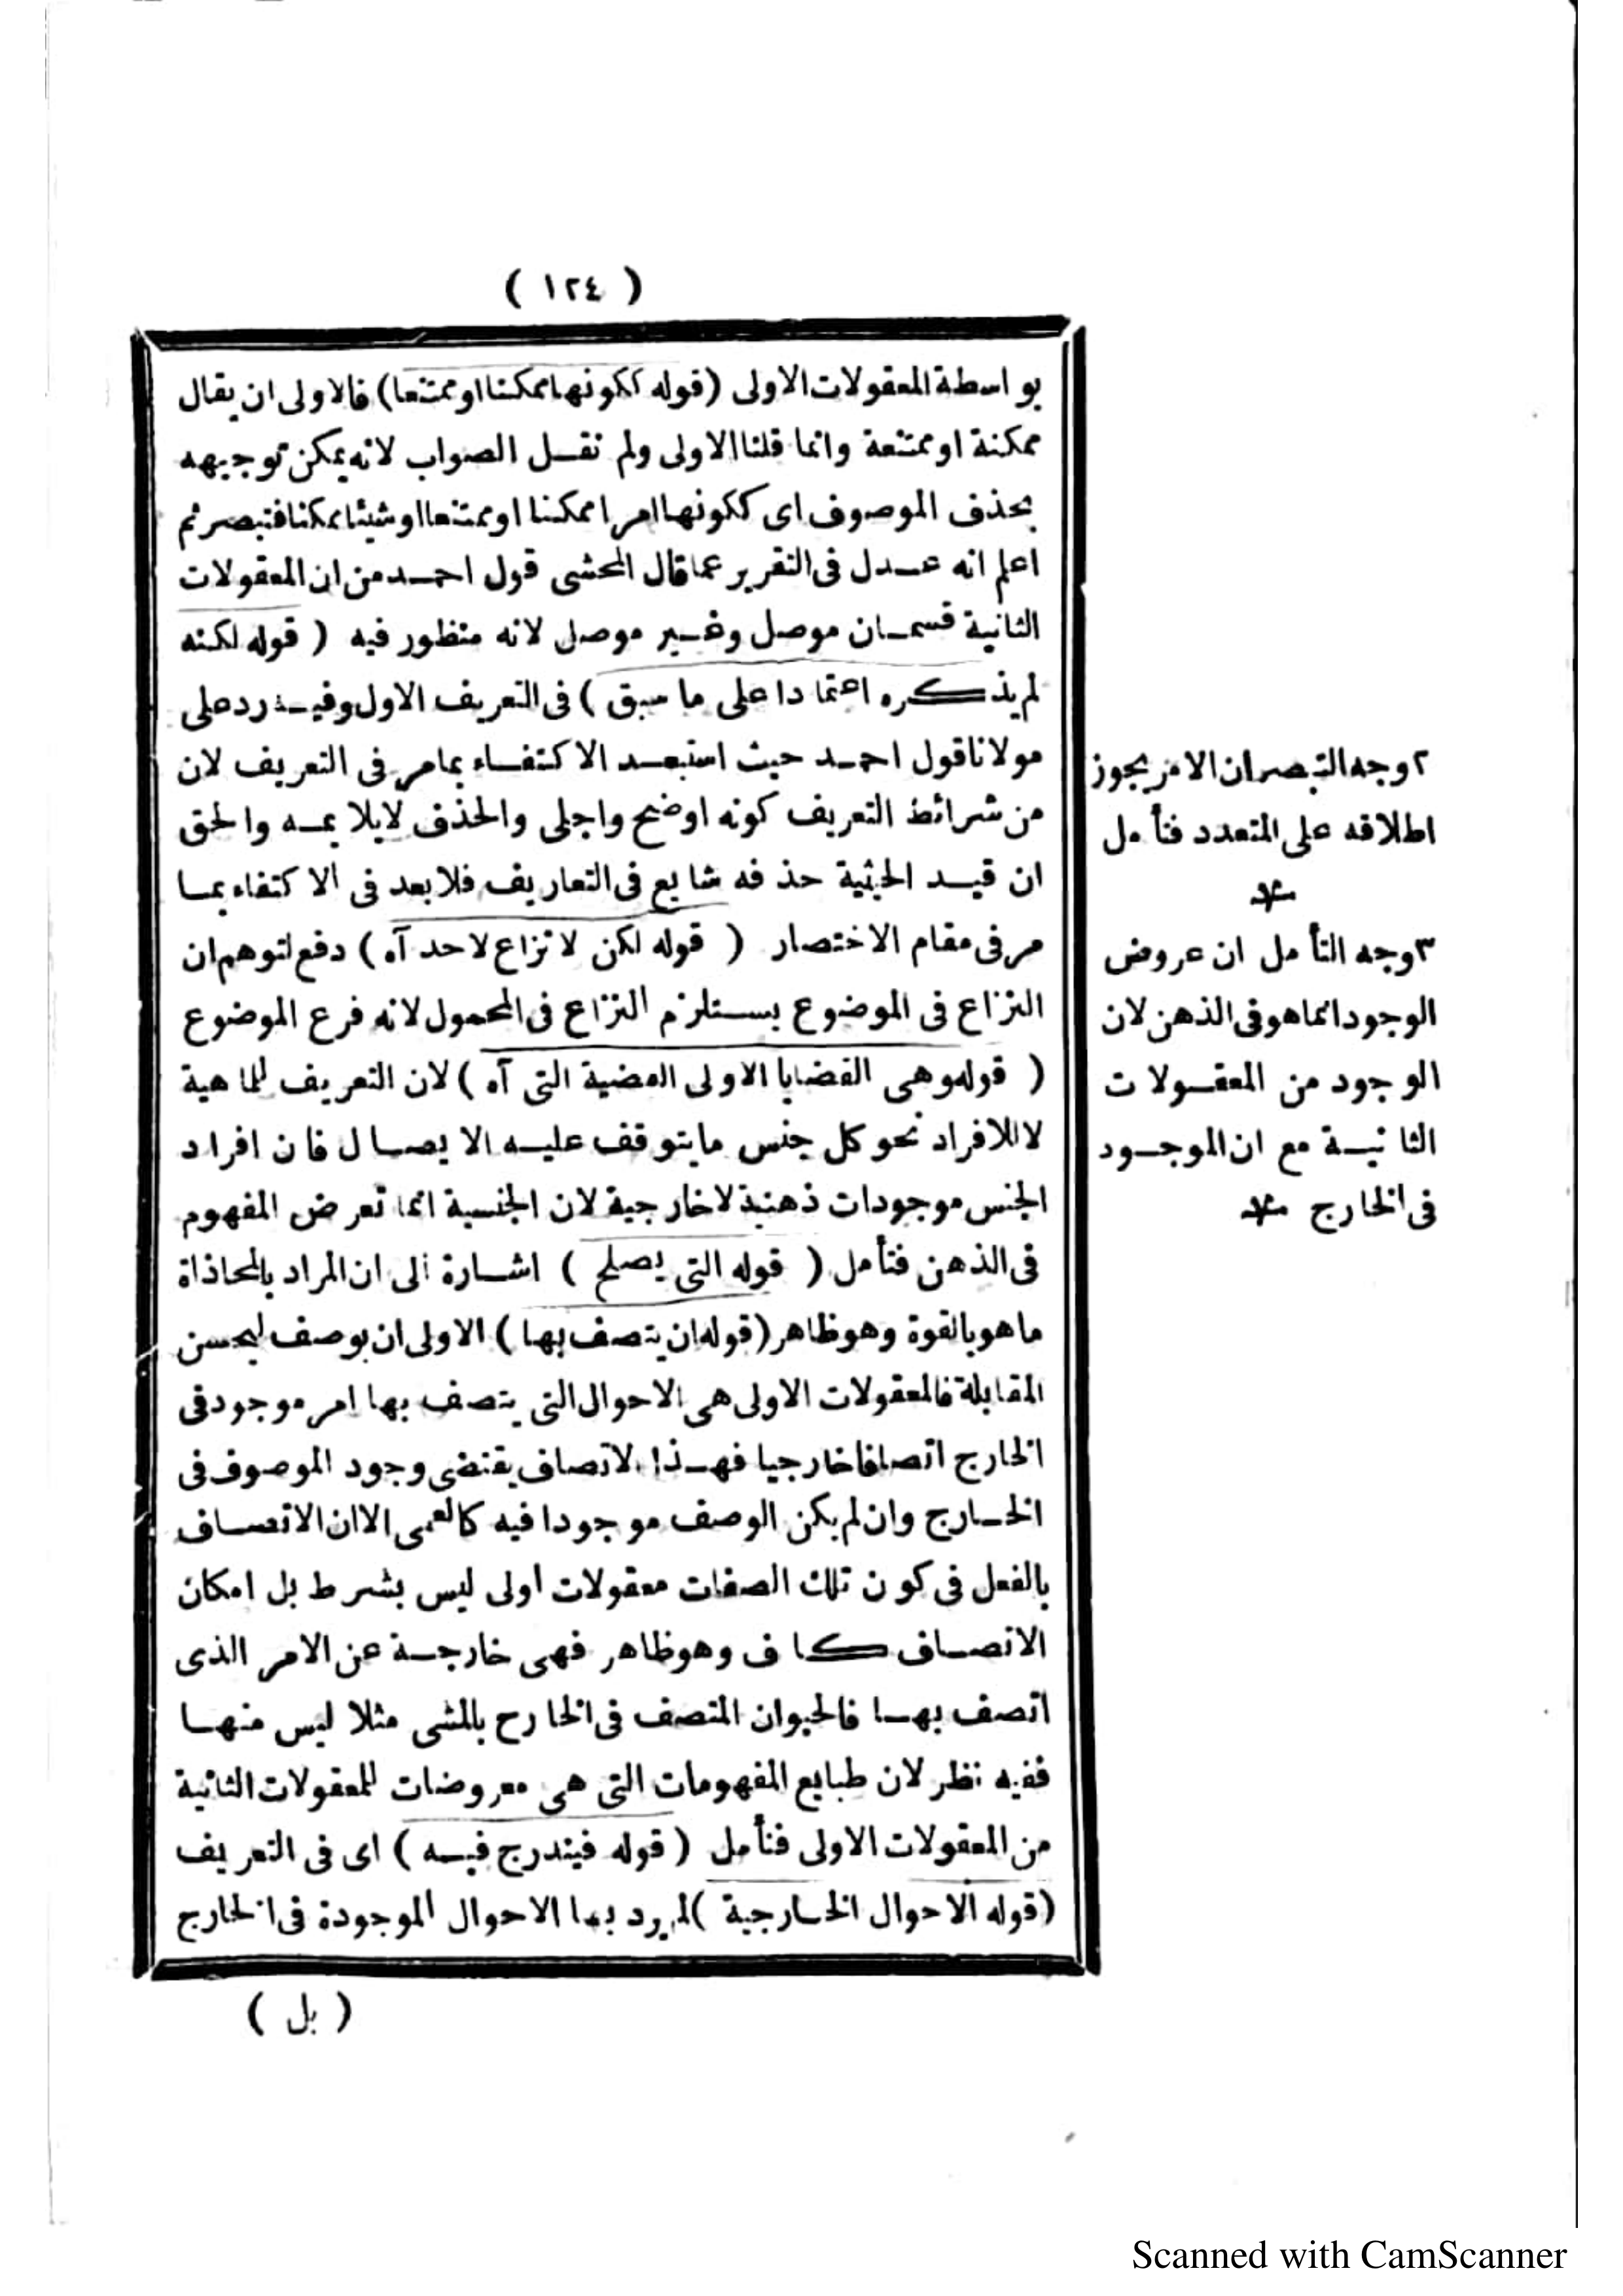 ( ١٢٤ )
بواسطة المعقولات الاولى (قوله ككونها ممكنا او ممتنعا) فالاولى ان يقال
ممكنة او ممتنعة وانما قلنا الاولى ولم نقل الصواب لانه يمكن توجيهه
بحذف الموصوف اى ككونها امرا ممكنا او ممتنعا او شيئا ممكنا فتبصر ثم
اعلم انه عدل فى التقرير عما قال المحشى قول احمد من ان المعقولات
الثانية قسمان موصل وغير موصل لانه منظور فيه ( قوله لكنه
لم يذكره اعتمادا على ما سبق ) فى التعريف الاول وفيه رد على
مولانا قول احمد حيث استبعد الاكتفاء بمامر فى التعريف لان
من شرائط التعريف كونه اوضح واجلى والحذف لا يلايمه والحق
ان قيد الحيثية حذفه شايع فى التعاريف فلا بعد فى الاكتفاء بما
مر فى مقام الاختصار ( قوله لكن لا نزاع لاحد آه ) دفع لتوهم ان
النزاع فى الموضوع يستلزم النزاع فى المحمول لانه فرع الموضوع
( قوله وهى القضايا الاولى القضية التى آه ) لان التعريف للماهية
لا للافراد نحو كل جنس ما يتوقف عليه الايصال فان افراد
الجنس موجودات ذهنية لا خارجية لان الجنسية انما تعرض المفهوم
فى الذهن فتأمل ( قوله التى يصلح ) اشارة الى ان المراد بالمحاذاة
ما هو بالقوة وهو ظاهر (قوله ان يتصف بها ) الاولى ان يوصف ليحسن
المقابلة فالمعقولات الاولى هى الاحوال التى يتصف بها امر موجود فى
الخارج اتصافا خارجيا فهذا الاتصاف يقتضى وجود الموصوف فى
الخارج وان لم يكن الوصف موجودا فيه كالعمى الا ان الاتصاف
بالفعل فى كون تلك الصفات معقولات اولى ليس بشرط بل امكان
الاتصاف كاف وهو ظاهر فهى خارجة عن الامر الذى
اتصف بها فالحيوان المتصف فى الخارج بالمشى مثلا ليس منها
ففيه نظر لان طبايع المفهومات التى هى معروضات للمعقولات الثانية
من المعقولات الاولى فتأمل ( قوله فيندرج فيه ) اى فى التعريف
(قوله الاحوال الخارجية ) لم يرد بها الاحوال الموجودة فى الخارج
( بل )
٢ وجه التبصر ان الامر يجوز
اطلاقه على المتعدد فتأمل
٣ وجه التأمل ان عروض
الوجود انما هو فى الذهن لان
الوجود من المعقولات
الثانية مع ان الموجود
فى الخارج
Scanned with CamScanner